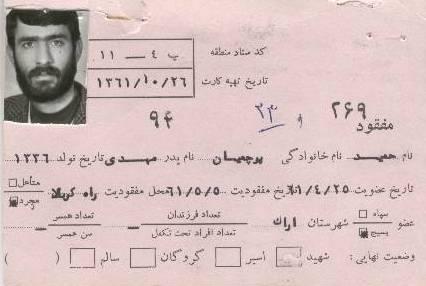 کد ستاد منطقه ب ۴ — ۱۱
تاریخ تهیه کارت ۱۳۶۱/۱۰/۲۶
۲۶۹
مفقود و ۳۳ ۹۴
نام حمید نام خانوادگی نام پدر مهدی تاریخ تولد ۱۳۳۶
تاریخ عضویت ۶۱/۴/۲۵ تاریخ مفقودیت ۶۱/۵/۵ محل مفقودیت راه کربلا متأهل مجرد
عضو سپاه بسیج شهرستان اراک تعداد فرزندان — تعداد همسر —
تعداد افراد تحت تکفل سن همسر
وضعیت نهایی: شهید اسیر گروگان سالم ( )